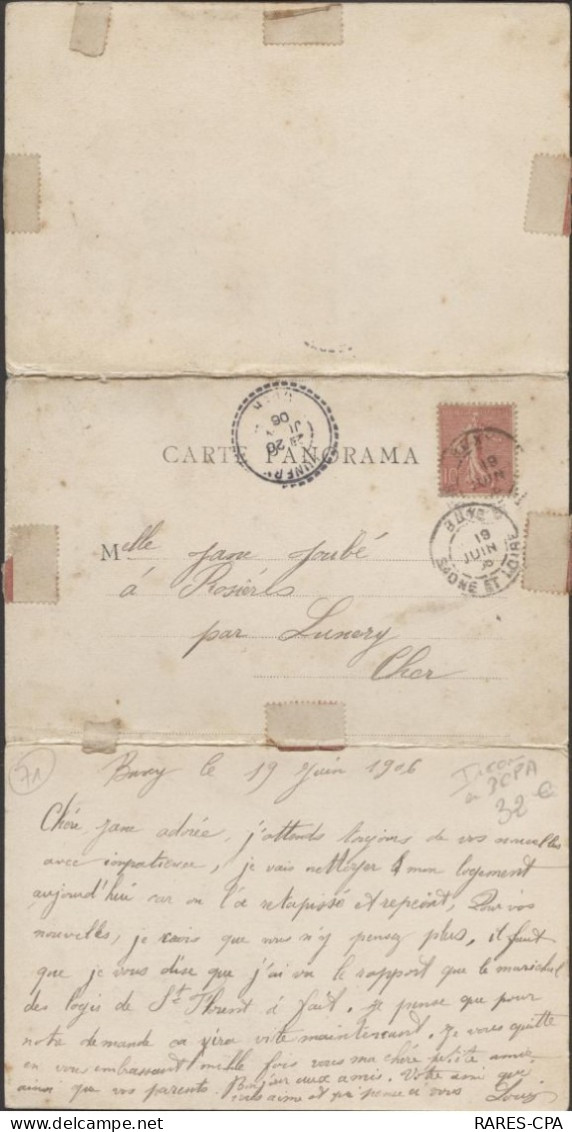 LUNERY
CHER
20
JUIN
06
CARTE PANORAMA
10
19
JUIN
BUXY
19
JUIN
SAONE ET LOIRE
Melle Jane Joubé
à Rosières
par Lunery
Cher
71
Buxy le 19 Juin 1906
3CPA
32 €
Chére Jane adorée, j'attends toujours de vos nouvelles
avec impatience, je vais nettoyer mon logement
aujourd'hui car on l'a retapissé et repeint, Pour vos
nouvelles, je crois que vous n'y pensez plus, il faut
que je vous dise que j'ai vu le rapport que le maréchal
des logis de St Florent à fait. Je pense que pour
notre demande ca y ira vite maintenant. Je vous quitte
en vous embrassant mille fois vous ma chére petite amie
ainsi que vos parents. Bonjour aux amis. Votre ami qui
vous aime et pense à vous Louis
RARES-CPA